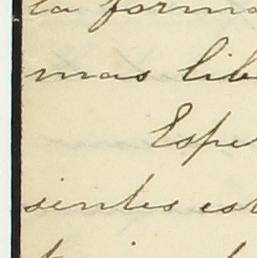 la forma
mas lib
Espe
sientes est